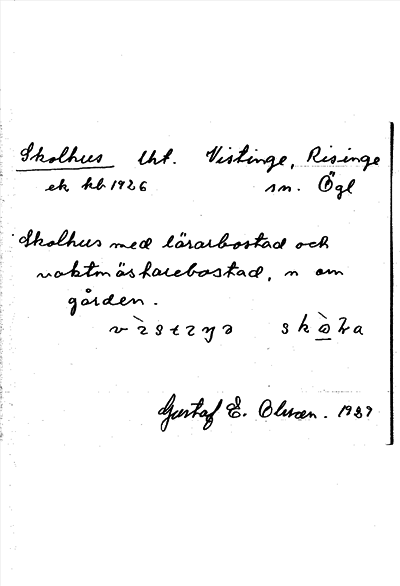 Skolhus lht. Vistinge, Risinge
ek kb 1926 sn. Ögl
Skolhus med lärarbostad och
vaktmästarebostad, n om
gården.
Gustaf E. Olsson. 1939